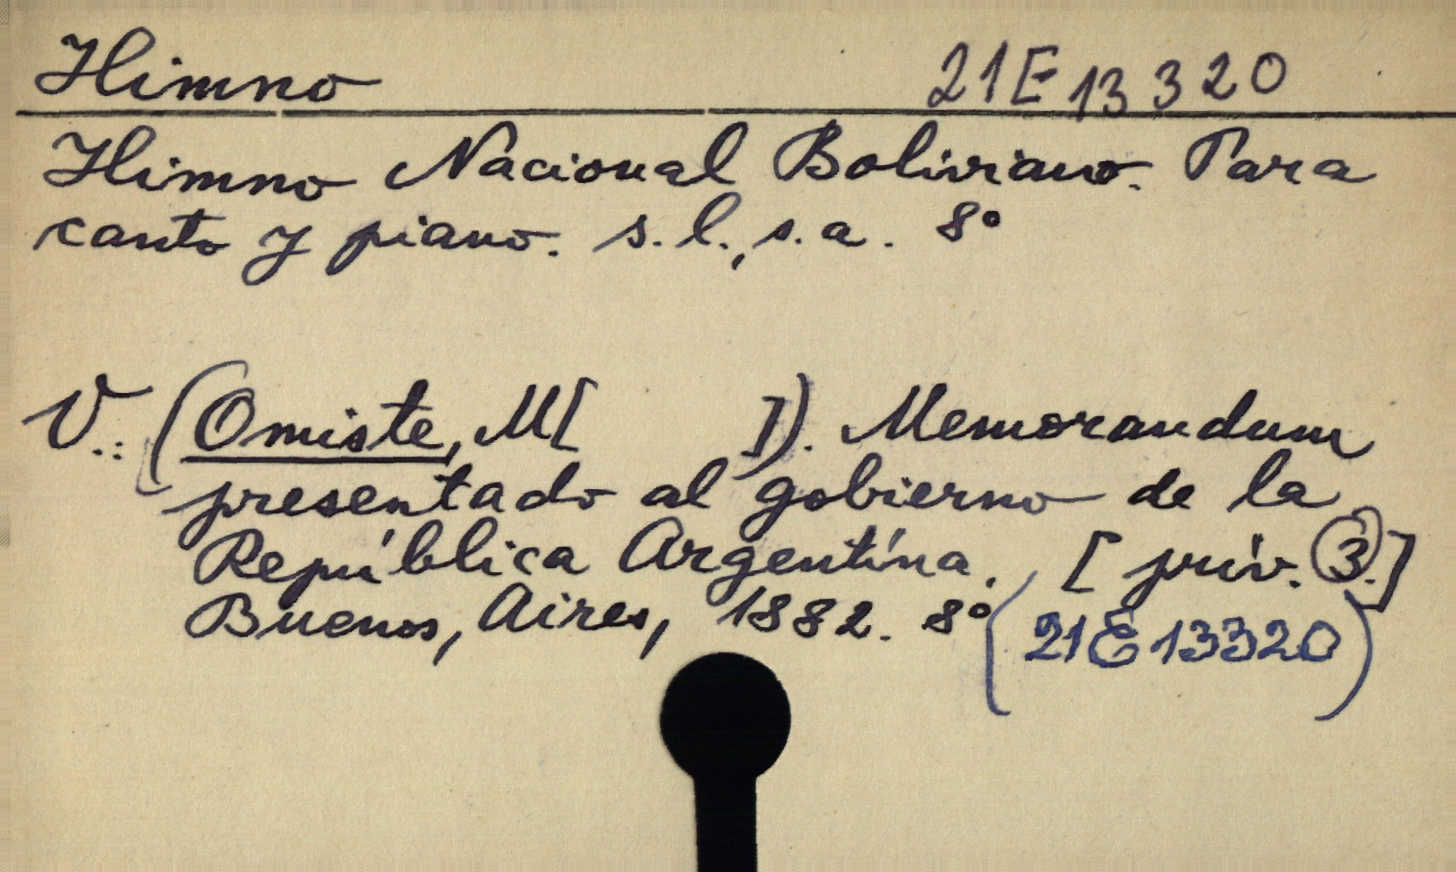 Himno 21E13320
Himno Nacional Boliviano. Para
canto y piano. s.l., s.a. 8°
V.: (Omiste, M[ ]). Memorandum
presentado al gobierno de la
República Argentína. [priv. 3.]
Buenos, Aires, 1882. 8° (21E13320)